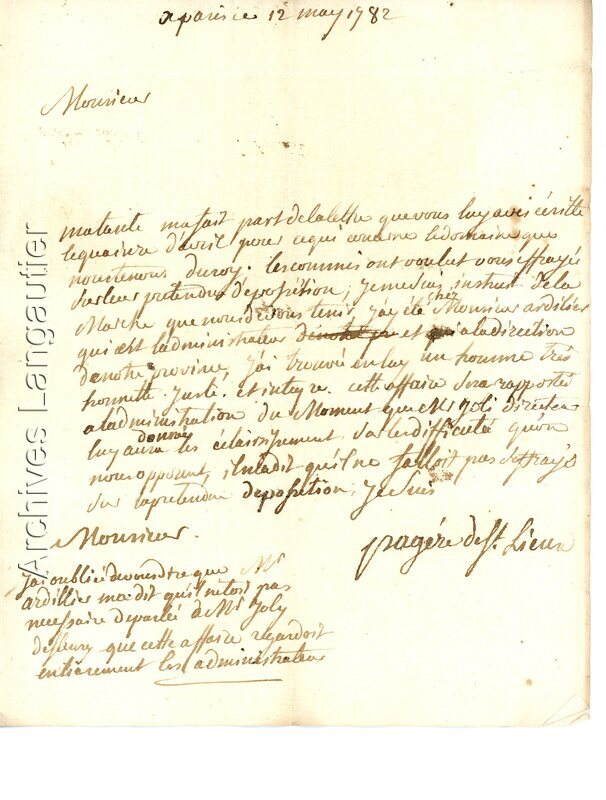 a paris ce 12 may 1782
Monsieur
matante mafait part delalettre que vous luy avés écritte
lequainze d'avril pour cequi concerne ledomaine que
noustenons duroy. lescommis ont voulut vous effrayée
surleur pretendue deposition, jemesuis instruit dela
Marche que nousdevons tenir, j'ay été chez Monsieur ardilier
qui est ladministrateur et qui aladirection
denotre province, j'ai trouvée enluy un homme très
honnette. juste. et integre. cette affaire sera rapportée
aladministration du Moment que Mr joli directeur
luy aura donnéz les éclaircissement sur lesdifficulté quon
nousopposent, il m'adit qu'il ne falloit pas s'effrayé
sur lapretendue deposition, je suis
Monsieur.
pagére de St. Lieux
j'ai oubliée devousdire que Mr
ardillier m'a dit quil netoit pas
necessaire deparlée à Mr Joly
defleury que cette affaire regardoit
entièrement les administrateur
Archives Langautier